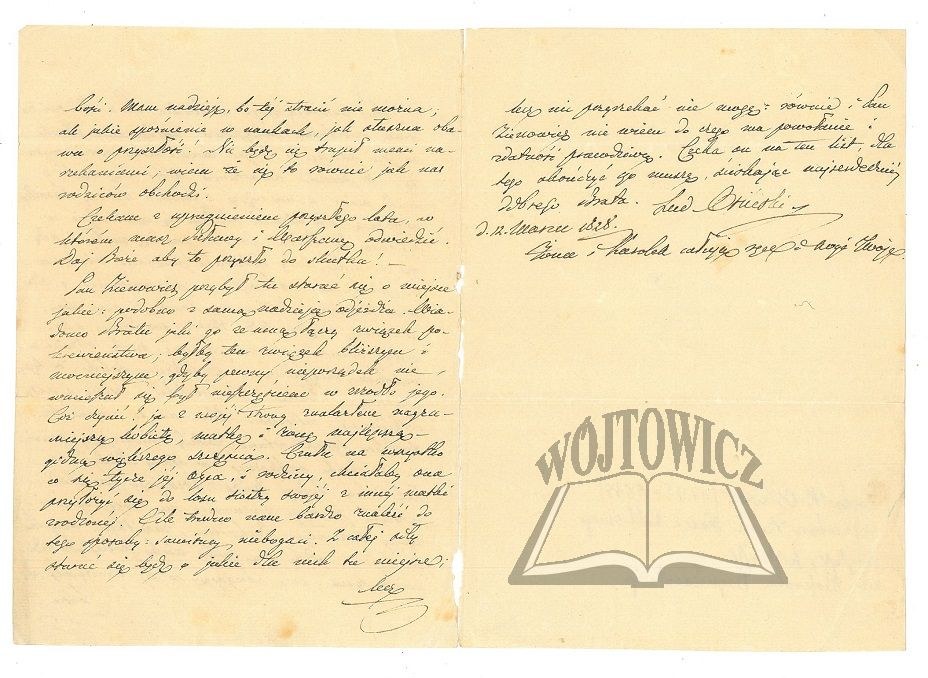 boni. Mam nadzieję, bo téj stracić nie można;
ale jakie spóźnienie w naukach, jak słuszna oba-
wa o przyszłość! Nie będę się trapił memi na-
rzekaniami; wiem że się to równie jak nas
rodziców obchodzi.
Czekam z upragnieniem przyszłego lata, w
którém masz Puławy i Warszawę odwiedzić.
Daj Boże aby to przyszło do skutku! —
Pan Zienowicz przybył tu starać się o miejsce
jakie: podobno z samą nadzieją odjeżdża. Wia-
domo Bratu jaki go ze mną łączy związek po-
krewieństwa; byłby ten związek bliższym i
mocniejszym, gdyby pewny nieporządek nie
wmieszał się był w źrodło jego.
Cóż czynić! ja z mojéj strony znalazłem najzac-
niejszą kobietę, matkę i żonę najlepszą —
godną większego szczęścia. Czuła na wszystko
co się tycze jéj ojca, i rodziny, chciałaby ona
przyłożyć się do losu siostry swojéj z innéj matki
zrodzonéj. Ale trudno nam bardzo znaleść do
tego sposoby: samiśmy niebogaci. Z całéj siły
starać się będę o jakie dla nich tu miejsce;
lecz
lecz nic przyrzekać nie mogę: równie i Pan
Zienowicz nie wiem do czego ma powołanie i
zdatność prawdziwą. Czeka on na ten list, dla
tego skończyć go muszę, ściskając najserdeczniéj
dobrego Brata. Lud Osiński
d. 12. Marca 1828.
Żona i Karolek całują ręce i nogi Twoje
WÓJTOWICZ